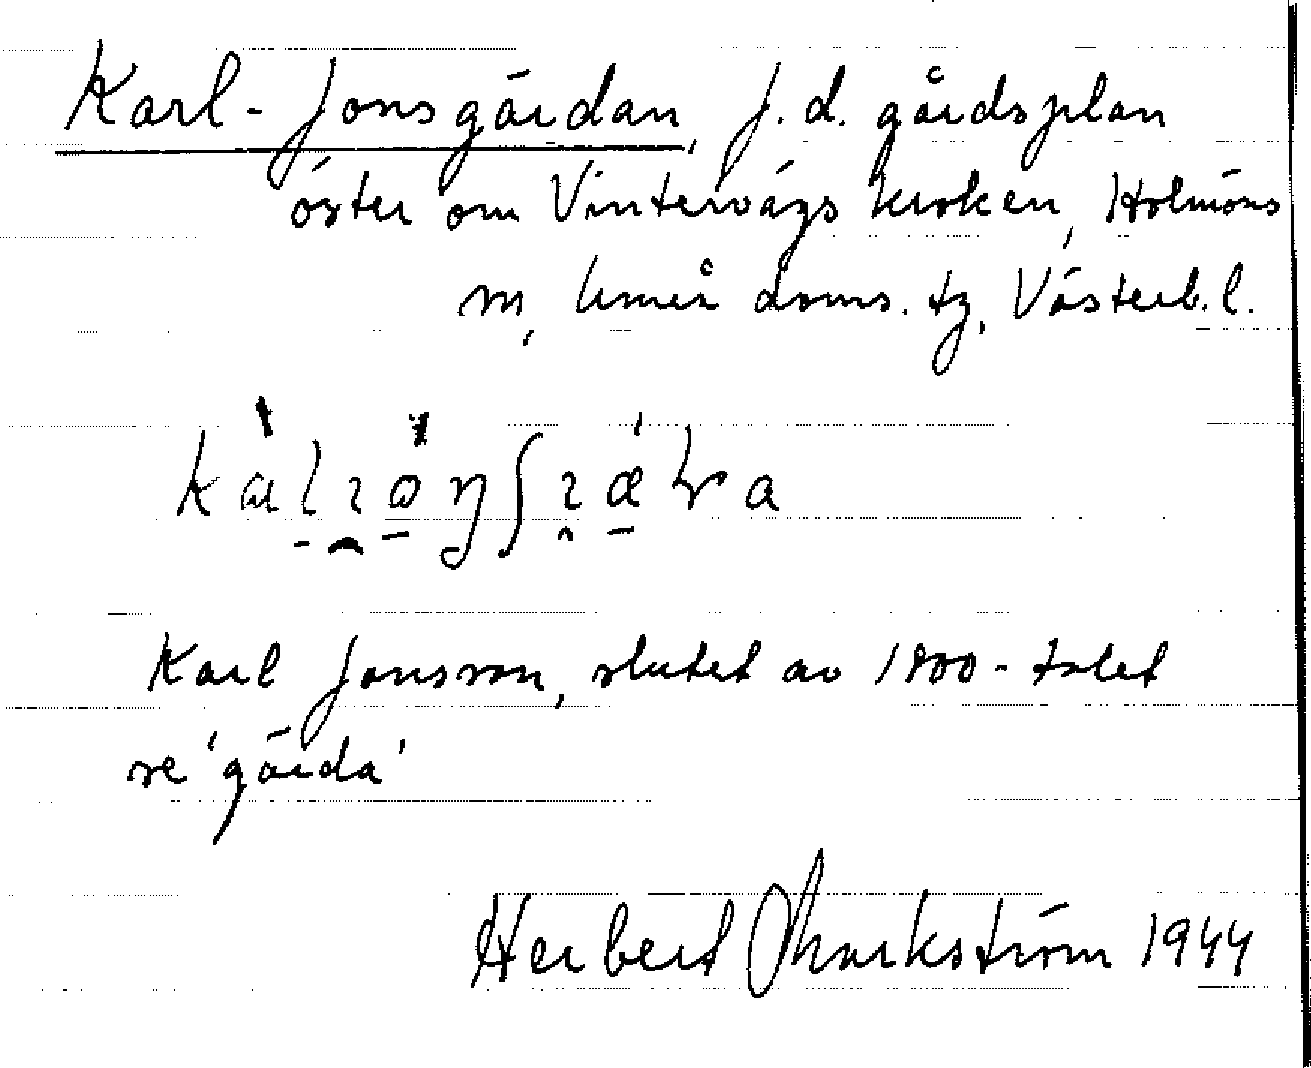 Karl-Jonsgärdan, f. d. gårdsplan
öster om Vintervägskroken, Holmöns
sn, Umeå doms. tg, Västerb. l.
Karl Jonsson, slutet av 1800-talet
se 'gärda'
Herbert Markström 1944